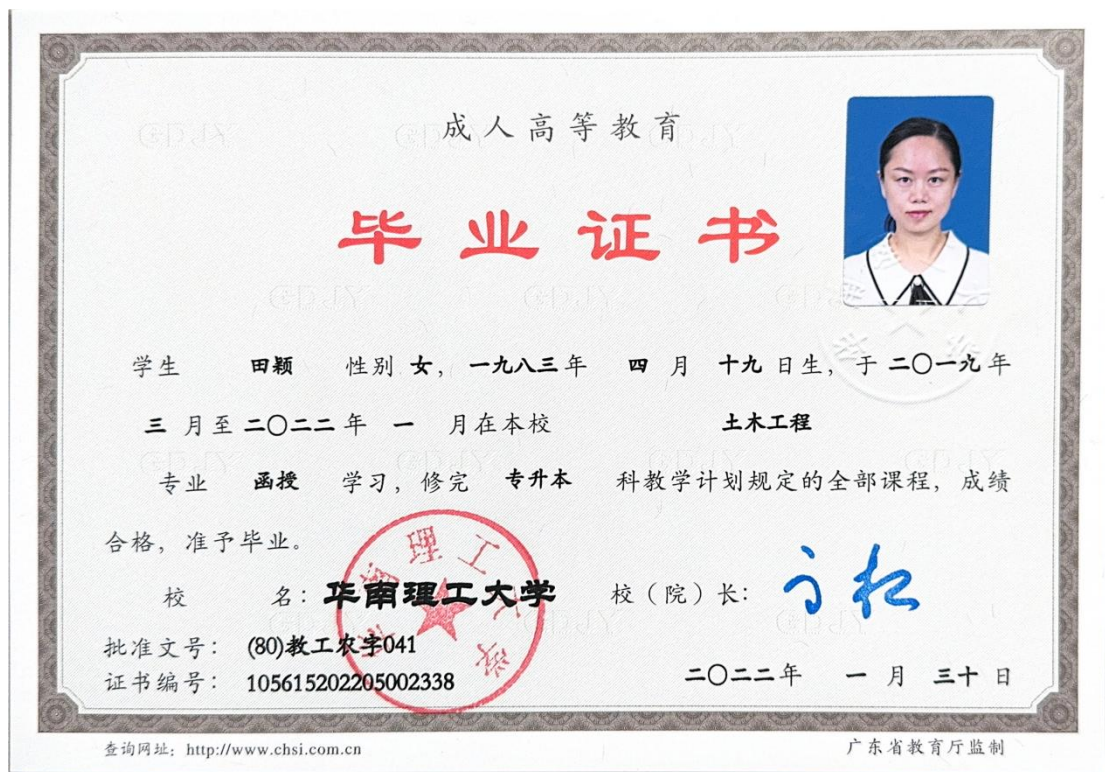 成人高等教育
毕业证书
学生 田颖 性别 女，一九八三年 四 月 十九 日生，于 二〇一九年
三 月至 二〇二二 年 一 月在本校 土木工程
专业 函授 学习，修完 专升本 科教学计划规定的全部课程，成绩
合格，准予毕业。
校 名：华南理工大学 校（院）长：
批准文号：(80)教工农字041
证书编号：105615202205002338
二〇二二年 一 月 三十 日
查询网址：http://www.chsi.com.cn 广东省教育厅监制
华南理工大学
GDJY